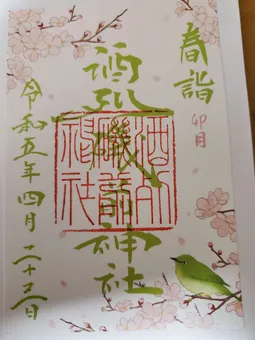 春詣
卯月
酒列磯前神社
酒列
磯前
神社
令和五年四月二十三日